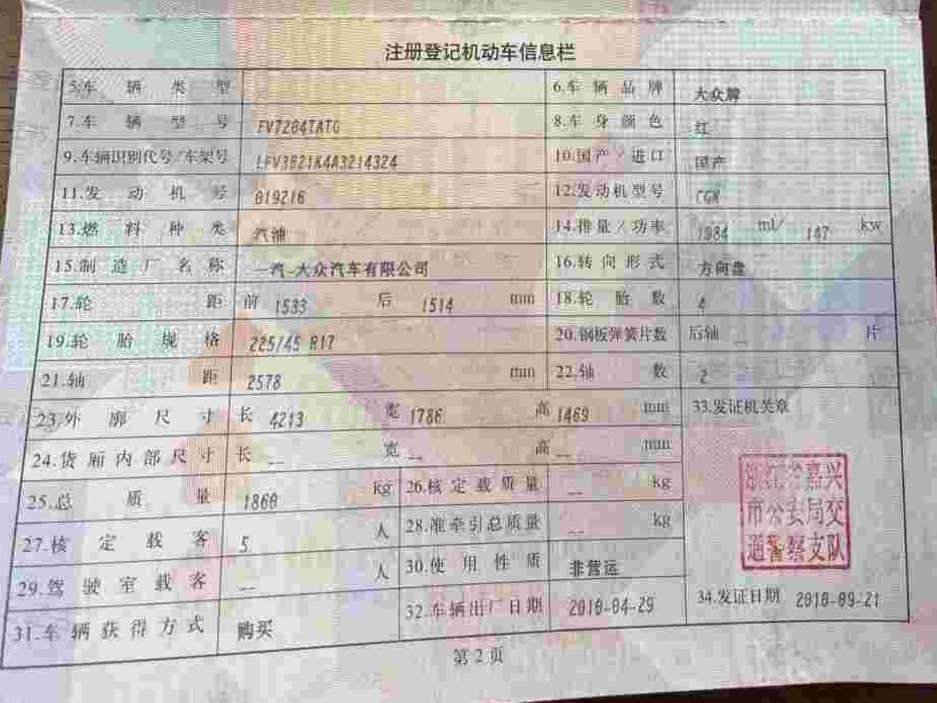 注册登记机动车信息栏
5.车辆类型 6.车辆品牌 大众牌
7.车辆型号 FV7204TATG 8.车身颜色 红
9.车辆识别代号/车架号 LFV3B21K4A3214324 10.国产/进口 国产
11.发动机号 019216 12.发动机型号 CGM
13.燃料种类 汽油 14.排量/功率 1984 ml/ 147 kw
15.制造厂名称 一汽-大众汽车有限公司 16.转向形式 方向盘
17.轮距 前 1533 后 1514 mm 18.轮胎数 4
19.轮胎规格 225/45 R17 20.钢板弹簧片数 后轴 -- 片
21.轴距 2578 mm 22.轴数 2
23.外廓尺寸 长 4213 宽 1786 高 1469 mm 33.发证机关章
24.货厢内部尺寸 长 -- 宽 -- 高 -- mm
25.总质量 1860 kg 26.核定载质量 -- kg
27.核定载客 5 人 28.准牵引总质量 -- kg
浙江省嘉兴
市公安局交
通警察支队
29.驾驶室载客 -- 人 30.使用性质 非营运
31.车辆获得方式 购买 32.车辆出厂日期 2010-04-29 34.发证日期 2010-09-21
第2页